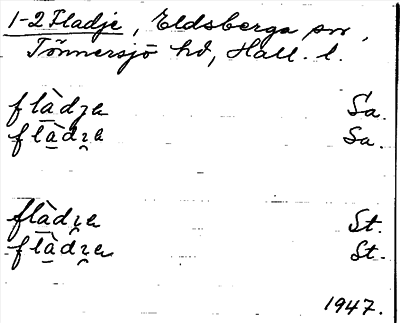 1-2 Fladje, Eldsberga sn,
Tönnersjö hd, Hall. l.
flàdʒa Sa.
flàdʒa Sa.
flàdʒa St.
flàdʒa St.
1947.